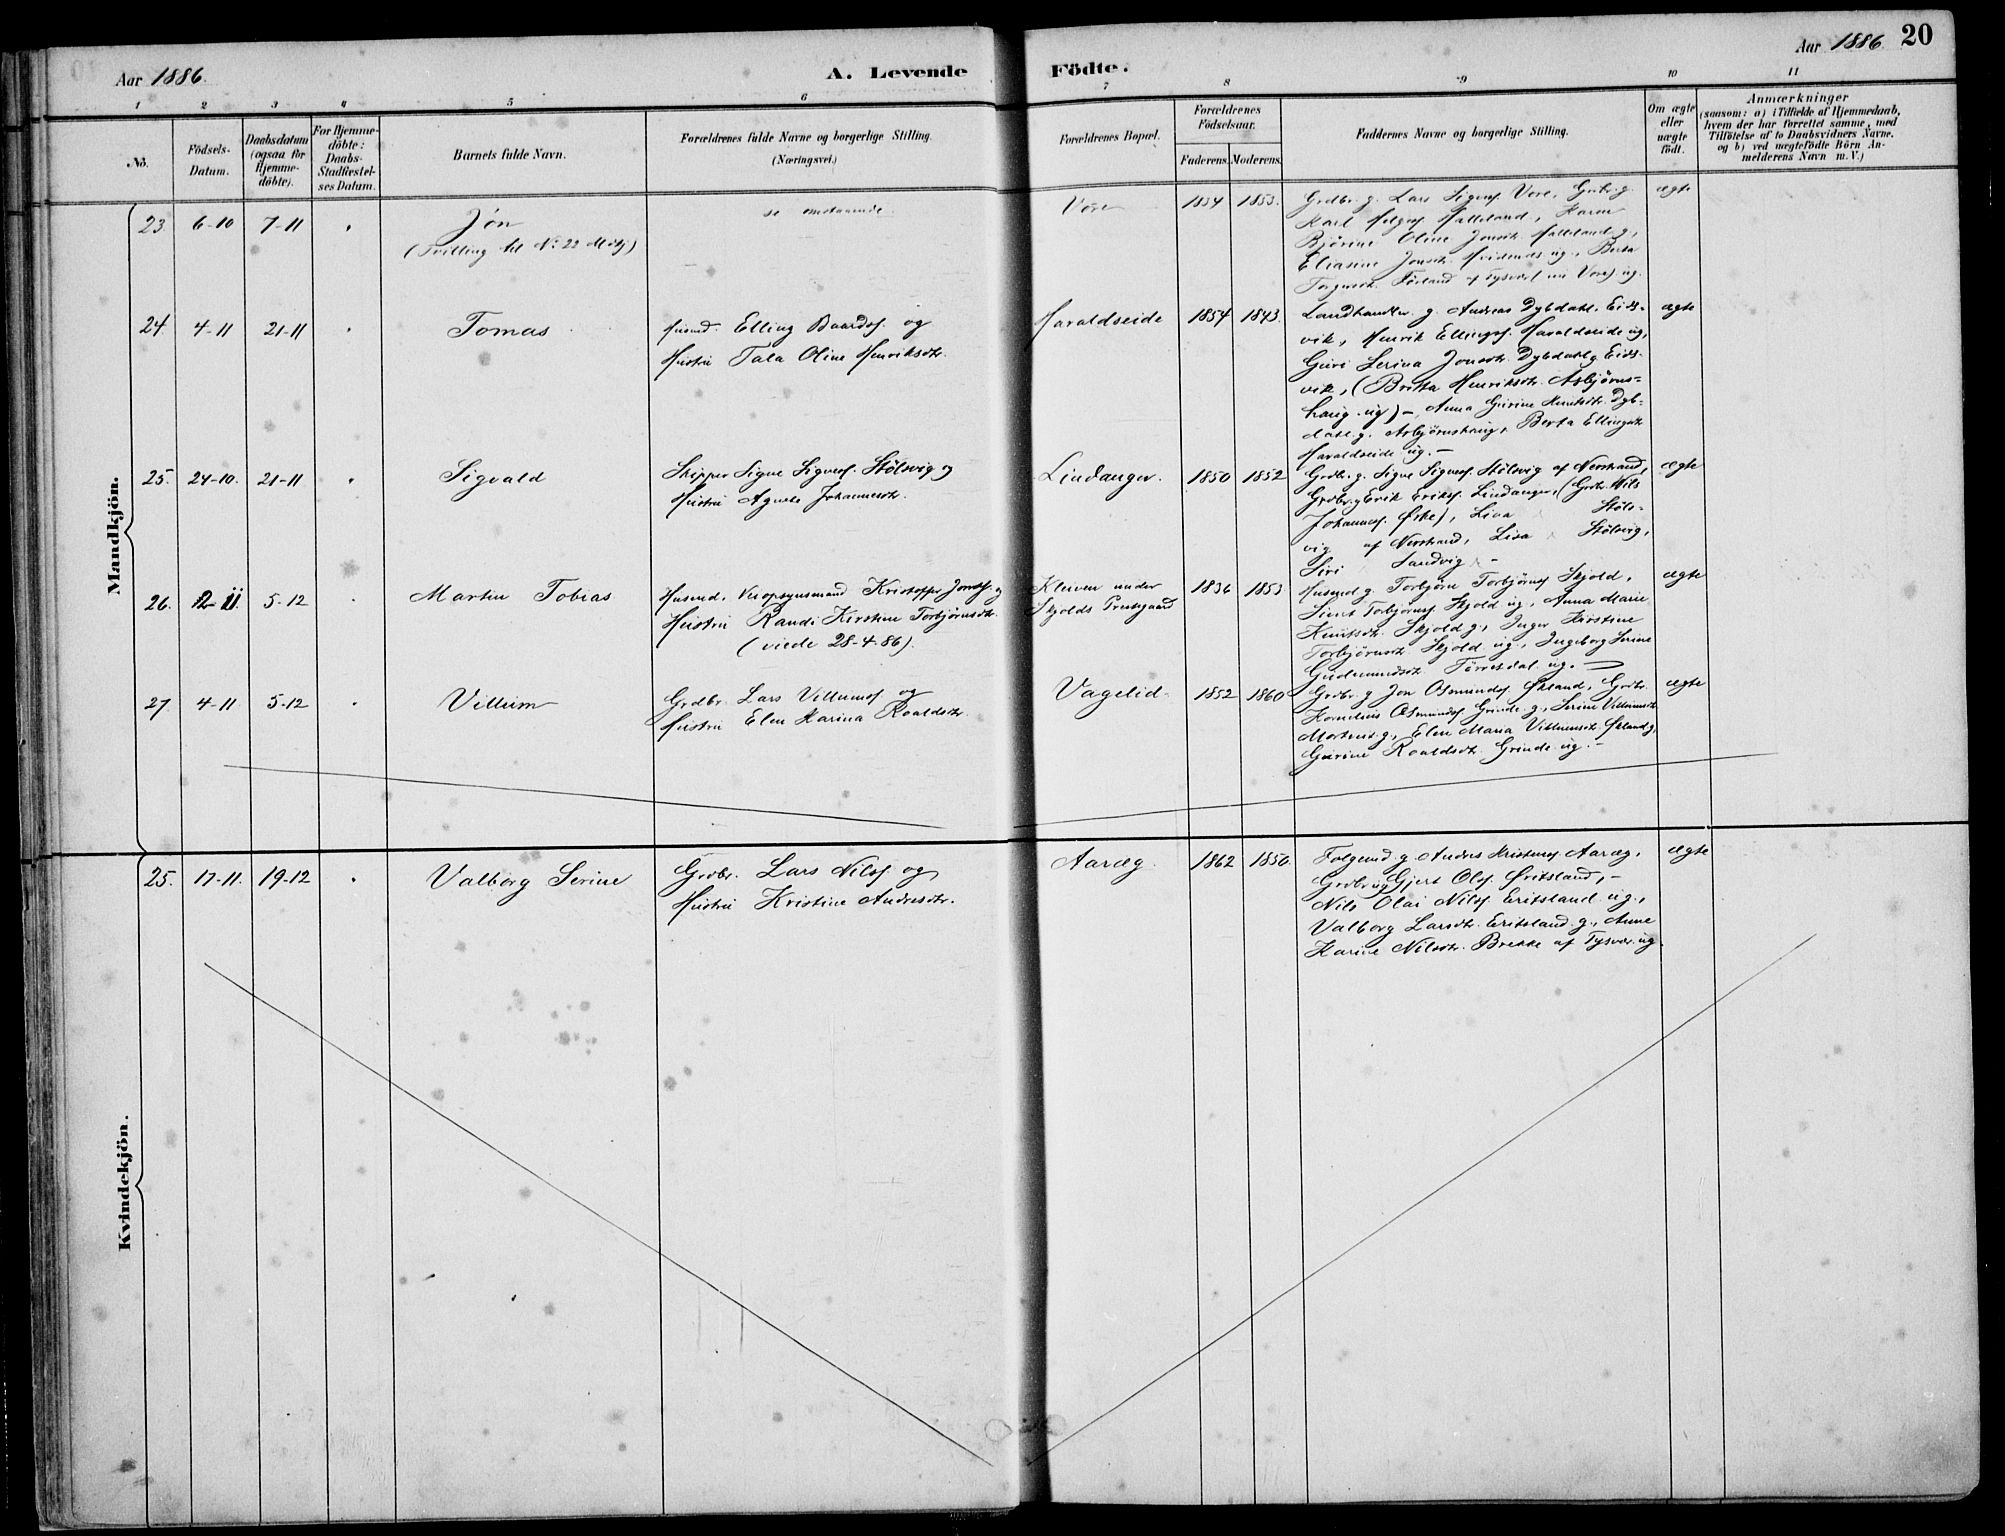 Aar 1886.
A. Levende Födte.
Aar 1886 20
1 2 3 4 5 6 7 8 9 10 11
No.
Födsels-
Datum.
Daabsdatum
(ogsaa for
Hjemme-
döbte).
For Hjemme-
döbte:
Daabs-
Stadfæstel-
ses Datum.
Barnets fulde Navn.
Forældrenes fulde Navne og borgerlige Stilling.
(Næringsvei.)
Forældrenes Bopæl.
Forældrenes
Födselsaar.
Faderens. Moderens.
Faddernes Navne og borgerlige Stilling.
Om ægte
eller
uægte
födt.
Anmærkninger
(saasom: a) i Tilfælde af Hjemmedaab,
hvem der har forrettet samme, med
Tilföielse af to Daabsvidners Navne.
og b) ved uægtefödte Börn An-
melderens Navn m. V.)
Mandkjön.
23. 6-10 7-11 "
Jón
(Tvilling til No 22 Mkj)
se omstaaende.
Vore
1854 1853.
Grdbr. g. Lars Sigvas. Vore, Grdbr. g
Karl Helges. Malleland, Karen
Bjørine Oline Jonsdtr. Malleland g.,
Eliasine Jonsdtr. ug., Berta
Førland af Tysvær ug.
ægte
24. 4-11 21-11 "
Tomas
Husmd. Elling Baardss. og
Hustru Tala Oline Henriksdtr.
Haraldseide
1854 1843.
Landhandler g. Andreas Dybdahl. Eids-
vik, Henrik Ellingss. Haraldseide ug,
Guri Serina Jonsdtr. Dybdahl g. Eids-
vik, (Britta Henriksdtr. Asbjørns-
haug. ug) -, Anna Gurine Knutsdtr. Dyb-
dahl. g. Asbjørnshaug, Berta Ellingsdtr
Haraldseide ug. -
ægte
25. 24-10. 21-11 "
Sigvald
Skipper Signe Sigvess. Stölsvig og
Hustru Agnete Johannesdtr.
Lindanger.
1850 1852
Grdbr. g. Signe Sigvess. Stölsvig af Nerstrand,
Grdbr. g Erik Eriks. Lindanger, (Grdbr. Nils
Johanness. Øske), Lisa Stöls-
vig af Nerstrand, Lisa Stölsvig,
Siri Sandvig -
ægte
26. 12-11. 5-12 "
Martin Tobias
Husmd. Kristoffer Jonss. og
Hustru Randi Kirstine Torbjørnsdtr.
(viede 28-4-86).
Kleiven under
Skjolds Prestgaard
1836 1853
Husmd g. Torbjørn Torbjørns Skjold,
Torbjørnss. Skjold ug., Anna Marie
Knutsdtr. Skjold g., Inger Kirstine
Torbjørnsdtr Skjold ug., Ingeborg Serine
Gudmundsdtr Törresdal. ug. -
ægte
27 4-11 5-12 "
Villum
Grdbr. Lars Villumss og
Hustru Elen Karina Roaldsdtr.
Vagelid.
1852 1860
Grdbr. g Jon Osmundss Økland, Grdbr.
Kornelius Osmundss Grinde g., Serine Villumsdtr
g., Elen Maria Villumsdtr. Økland g,
Gurine Roaldsdtr. Grinde. ug. -
ægte
Kvindekjön.
25. 17-11. 19-12 "
Valborg Serine
Grdbr. Lars Nilss og
Hustru Kristine Andersdtr.
Aaræg.
1862 1850.
Folgemd g. Anders Kristens Aaræg,
Grdbr. ug Gjert Olss. Eritsland, -
Nils Olai Nilss Eritsland ug.,
Valborg Larsdtr. Eritsland g., Anne
Karine Nilsdtr. Brekke af Tysvær. ug
ægte